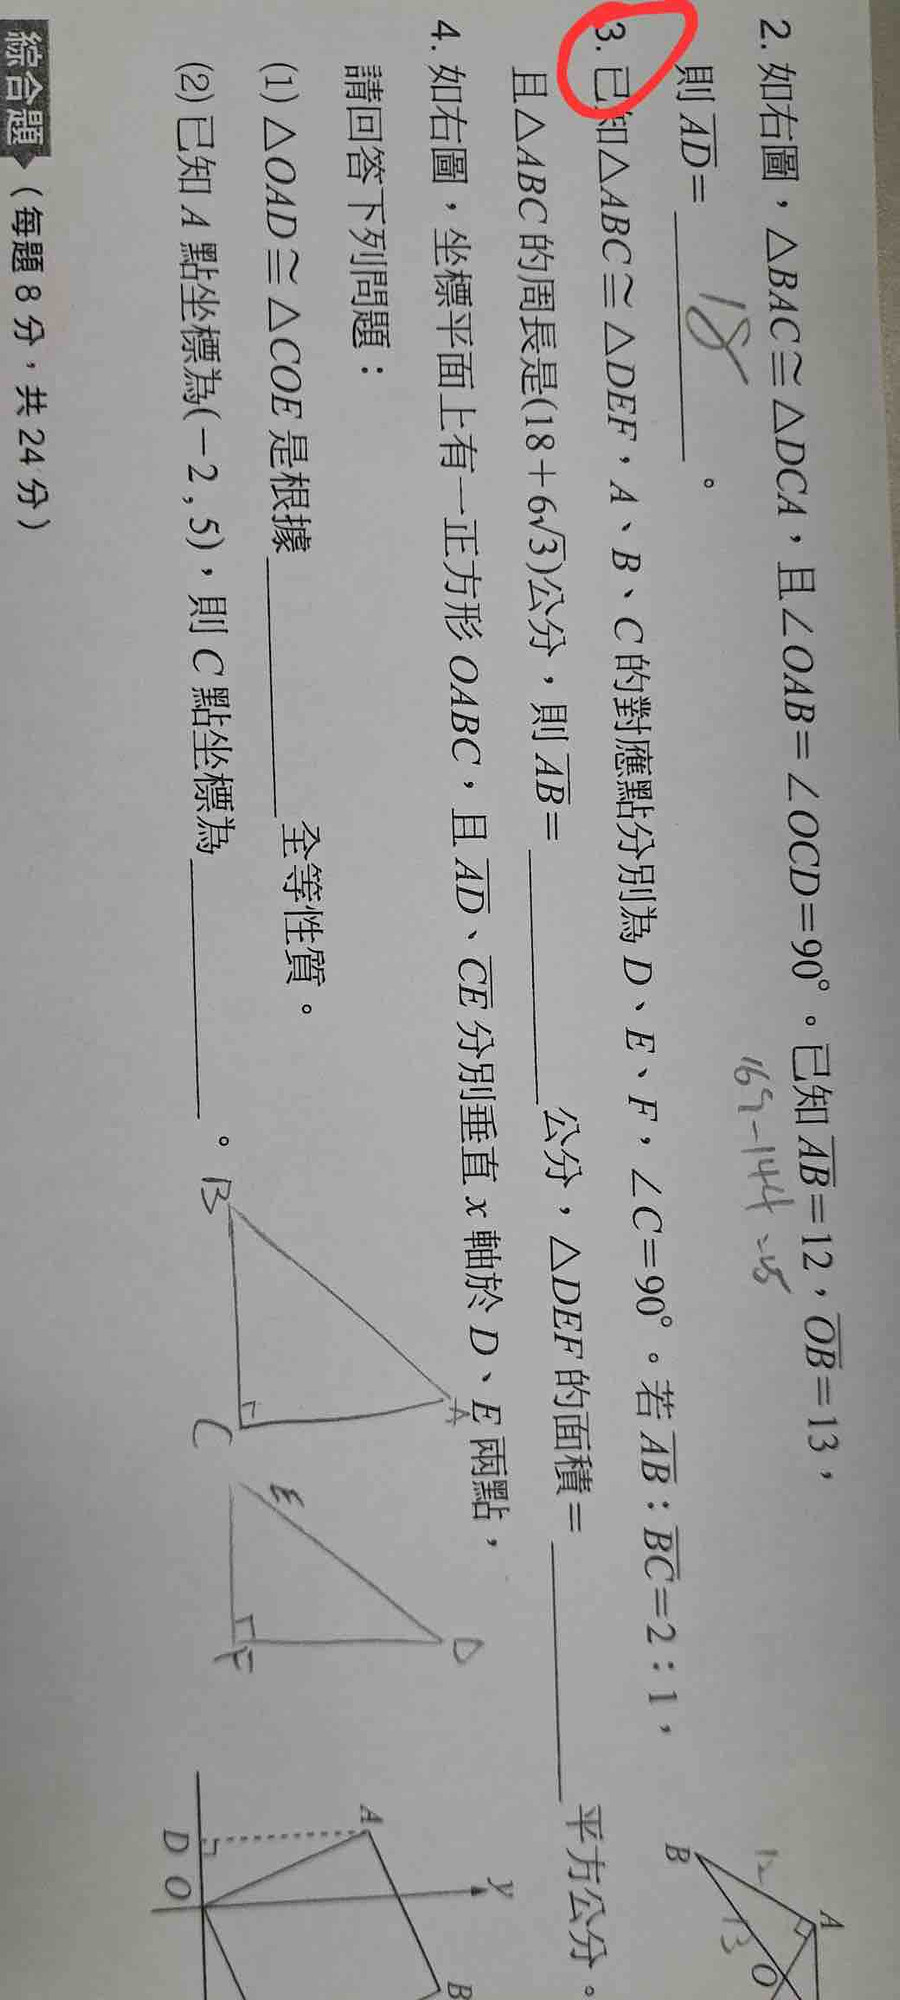 2. 如右圖，△BAC≅△DCA，且∠OAB=∠OCD=90°。已知AB=12，OB=13，
169-144=25
則AD= 18 。
3. 已知△ABC≅△DEF，A、B、C的對應點分別為D、E、F，∠C=90°。若AB：BC=2：1，
且△ABC的周長是(18+6√3)公分，則AB= 公分，△DEF的面積= 平方公分。
4. 如右圖，坐標平面上有一正方形OABC，且AD、CE分別垂直x軸於D、E兩點，
請回答下列問題：
(1) △OAD≅△COE是根據 全等性質。
(2) 已知A點坐標為(-2,5)，則C點坐標為 。
綜合題（每題8分，共24分）
A
B
O
12
13
B
A
C
E
D
F
y
A
B
D
O